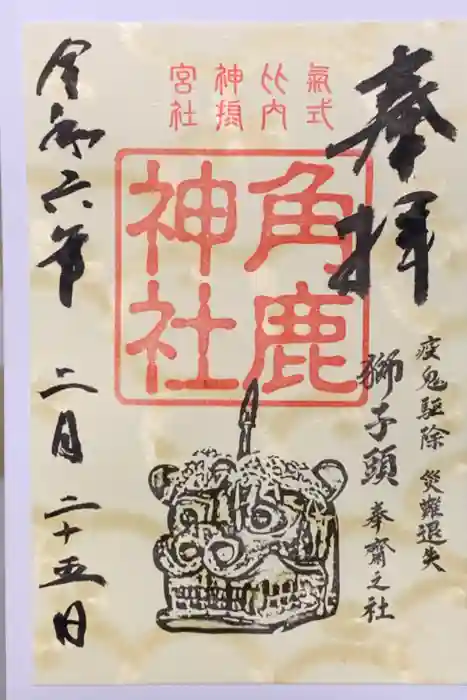 奉拝
疫鬼駆除 災難退失
獅子頭 奉齋之社
氣式
比内
神
宮社
角鹿
神社
令和六年 二月二十五日